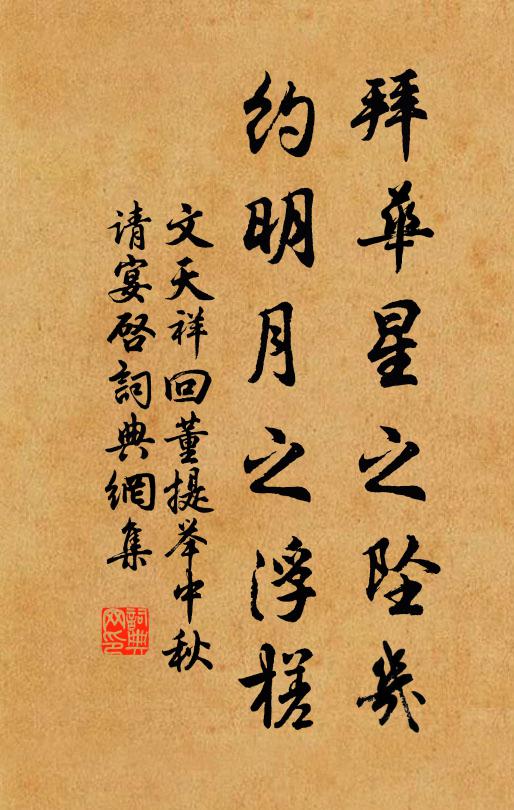 拜华星之坠几
约明月之浮槎
文天祥回董提举中秋
请宴启詞典網集
詞典网印